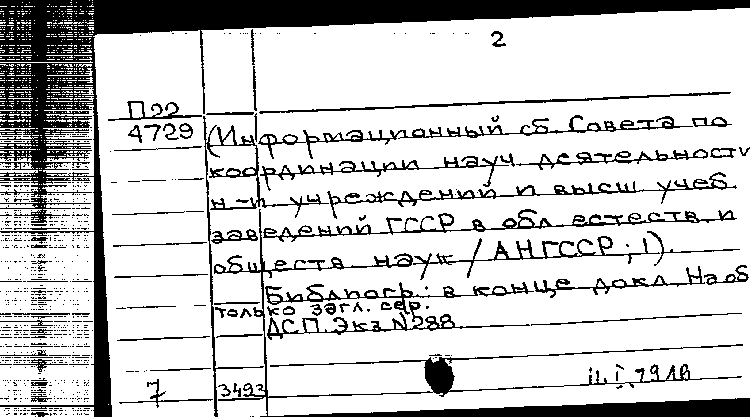 2
П22
4729
(Информационный сб. Совета по
координации науч. деятельности
н-и учреждений и высш учеб.
заведений ГССР в обл естеств и
обществ наук / АН ГССР ; 1).
Библиогр.: в конце докл На об
только загл. сер.
ДСП. Экз N288.
7
3493